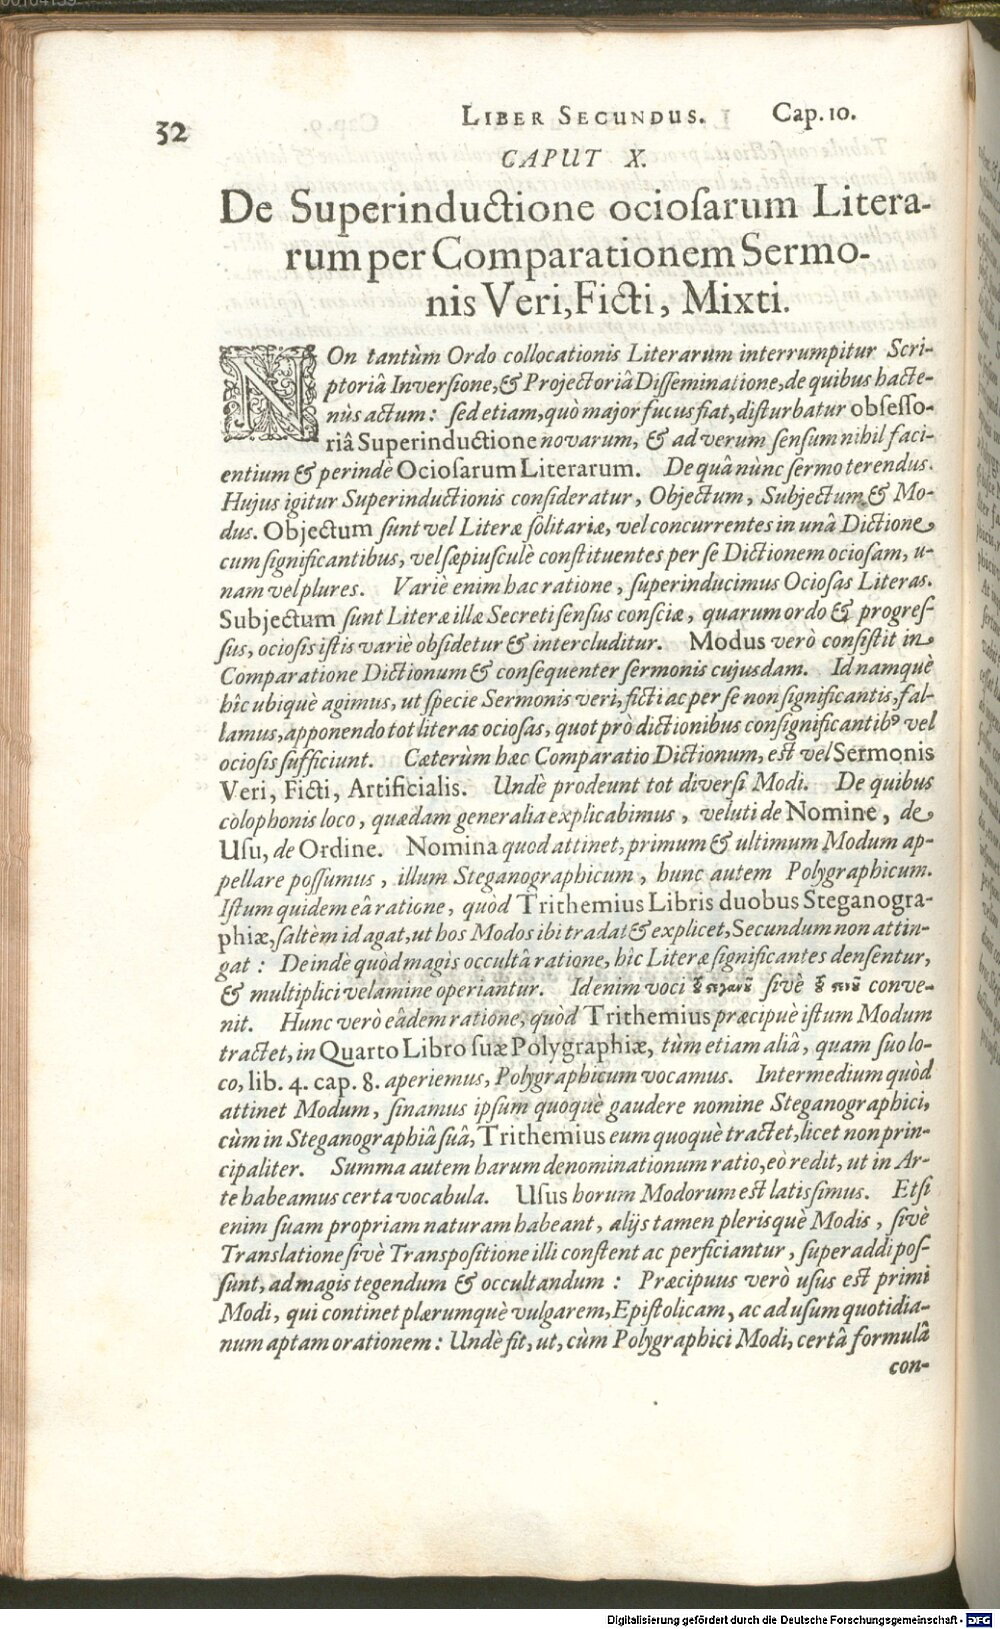 32
LIBER SECUNDUS. Cap. 10.
CAPUT X.
De Superinductione ocioſarum Litera-
rum per Comparationem Sermo-
nis Veri, Ficti, Mixti.
NOn tantùm Ordo collocationis Literarum interrumpitur Scri-
ptoriâ Inverſione, & Projectoriâ Diſſeminatione, de quibus hacte-
nùs actum: ſed etiam, quò major fucus fiat, diſturbatur obſeſſo-
riâ Superinductione novarum, & ad verum ſenſum nihil faci-
entium & perindè Ocioſarum Literarum. De quâ nùnc ſermo terendus.
Hujus igitur Superinductionis conſideratur, Objectum, Subjectum & Mo-
dus. Objectum ſunt vel Literæ ſolitariæ, vel concurrentes in unâ Dictione
cum ſignificantibus, vel ſæpiuſculè conſtituentes per ſe Dictionem ocioſam, u-
nam vel plures. Variè enim hac ratione, ſuperinducimus Ocioſas Literas.
Subjectum ſunt Literæ illæ Secreti ſenſus conſciæ, quarum ordo & progreſ-
ſus, ocioſis iſtis variè obſidetur & intercluditur. Modus verò conſiſtit in
Comparatione Dictionum & conſequenter ſermonis cujusdam. Id namquè
hîc ubiquè agimus, ut ſpecie Sermonis veri, ficti ac per ſe non ſignificantis, fal-
lamus, apponendo tot literas ocioſas, quot prò dictionibus conſignificantibꝰ vel
ocioſis ſufficiunt. Cæterùm hæc Comparatio Dictionum, eſt vel Sermonis
Veri, Ficti, Artificialis. Undè prodeunt tot diverſi Modi. De quibus
colophonis loco, quædam generalia explicabimus, veluti de Nomine, de
Uſu, de Ordine. Nomina quod attinet, primum & ultimum Modum ap-
pellare poſſumus, illum Steganographicum, hunc autem Polygraphicum.
Iſtum quidem eâ ratione, quòd Trithemius Libris duobus Steganogra-
phiæ, ſaltèm id agat, ut hos Modos ibi tradat & explicet, Secundum non attin-
gat: Deindè quòd magis occultâ ratione, hîc Literæ ſignificantes denſentur,
& multiplici velamine operiantur. Id enim voci ſivè conve-
nit. Hunc verò eâdem ratione, quòd Trithemius præcipuè iſtum Modum
tractet, in Quarto Libro ſuæ Polygraphiæ, tùm etiam aliâ, quam ſuo lo-
co, lib. 4. cap. 8. aperiemus, Polygraphicum vocamus. Intermedium quòd
attinet Modum, ſinamus ipſum quoquè gaudere nomine Steganographici,
cùm in Steganographiâ ſuâ, Trithemius eum quoquè tractet, licet non prin-
cipaliter. Summa autem harum denominationum ratio, eò redit, ut in Ar-
te habeamus certa vocabula. Uſus horum Modorum eſt latiſſimus. Etſi
enim ſuam propriam naturam habeant, alijs tamen plerisquè Modis, ſivè
Translatione ſivè Transpoſitione illi conſtent ac perficiantur, ſuperaddi poſ-
ſunt, ad magis tegendum & occultandum: Præcipuus verò uſus eſt primi
Modi, qui continet plærumquè vulgarem, Epiſtolicam, ac ad uſum quotidia-
num aptam orationem: Undè fit, ut, cùm Polygraphici Modi, certâ formulâ
con-
Digitalisierung gefördert durch die Deutsche Forschungsgemeinschaft - DFG